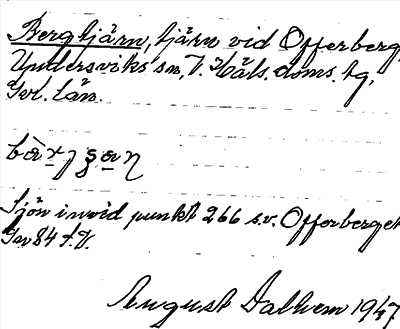 Bergtjärn, tjärn vid Offerberg,
Undersviks sn, V. Häls. doms. tg,
Gvl. län.
Sjön invid punkt 266 s.v. Offerberget
Gev 84 f.V.
August Dalhem 1947